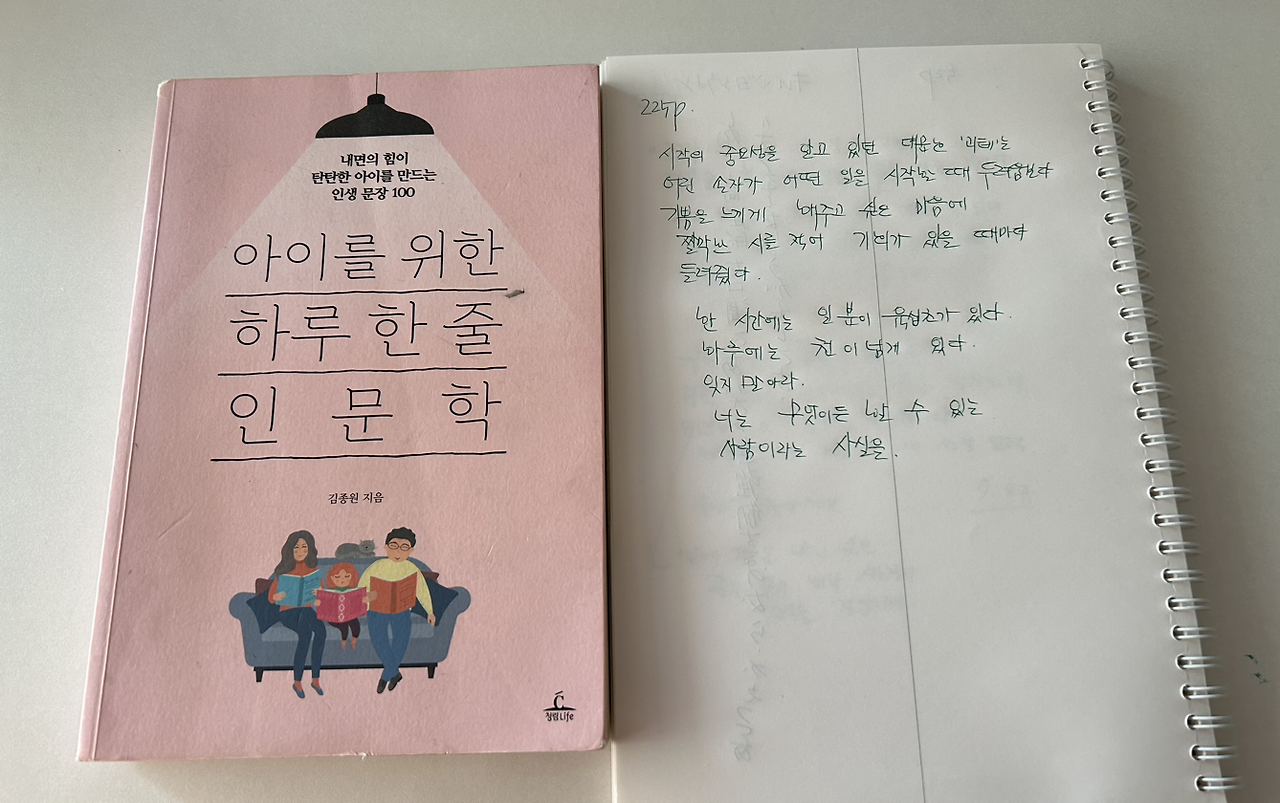 내면의 힘이
탄탄한 아이를 만드는
인생 문장 100
아이를 위한
하루 한 줄
인문학
김종원 지음
청림Life
225p.
시작의 중요성을 알고 있던 대문호 '괴테'는
어린 손자가 어떤 일을 시작할 때 두려움보다
기쁨을 느끼게 해주고 싶은 마음에
짤막한 시를 적어 기회가 있을 때마다
들려줬다.
한 시간에는 일분이 육십초가 있다.
하루에는 천이 넘게 있다.
잊지 말아라.
너는 무엇이든 할 수 있는
사람이라는 사실을.